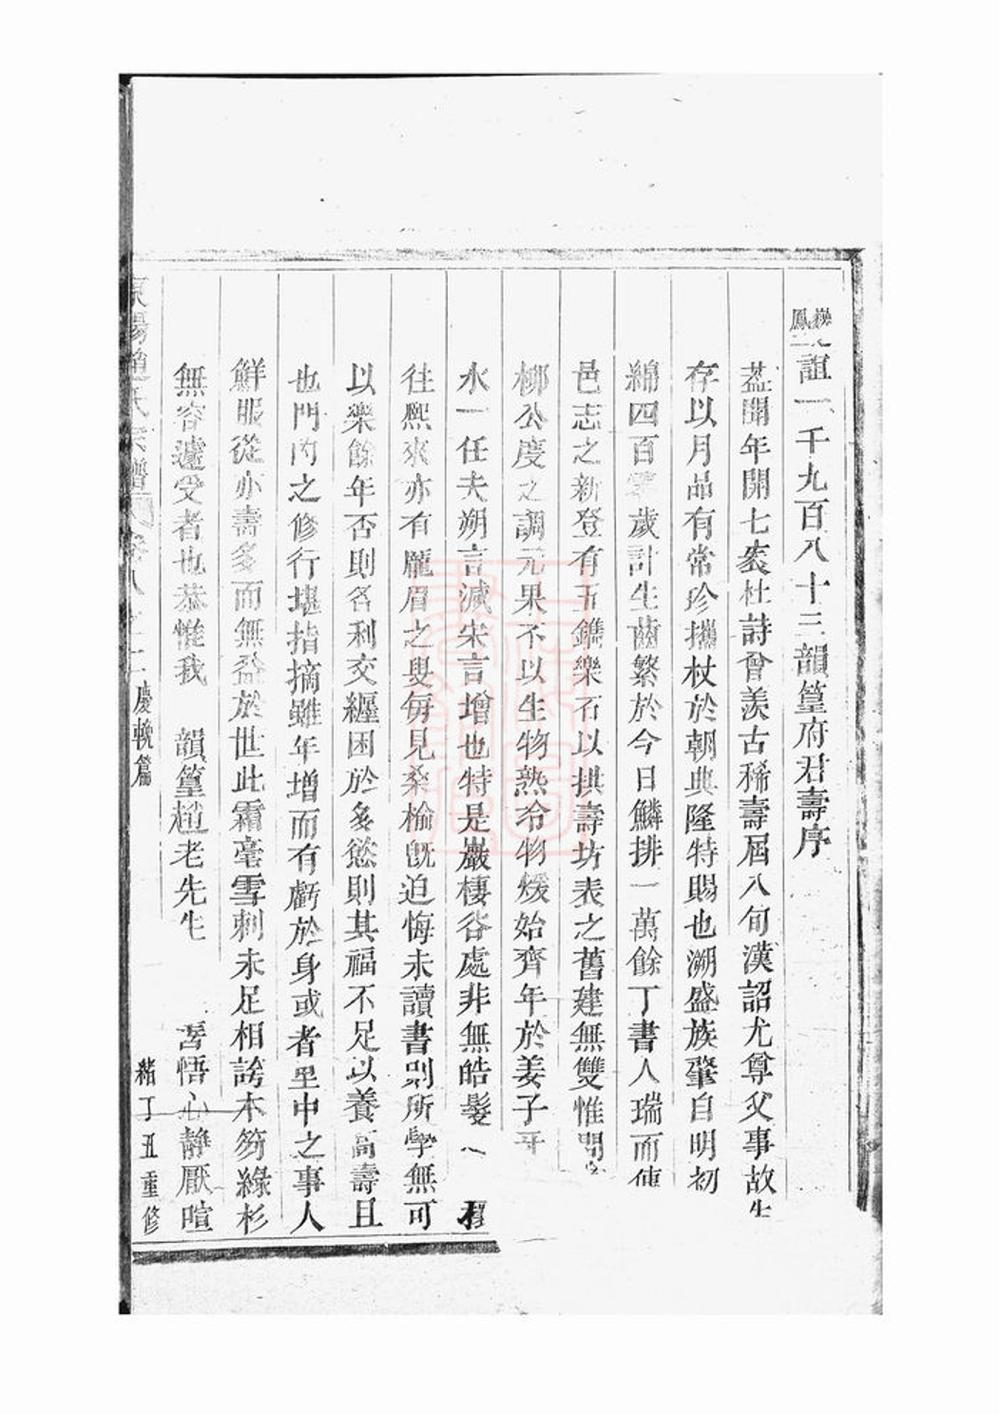 鳳誼一千九百八十三韻篁府君壽序
葢聞年開七袠杜詩曾羨古稀壽屆八旬漢詔尤尊父事故生
存以月品有常珍攜杖於朝典隆特賜也溯盛族肇自明初
綿四百零歲計生齒繁於今日鱗排一萬餘丁書人瑞而
邑志之新登有五鐫樂石以拱壽坊表之舊建無雙惟
柳公度之調元果不以生物熟冷物煖始齊年於姜子牙
水一任夫朔言減宋言增也特是巖棲谷處非無皓髮
往熙來亦有龐眉之叟每見桑榆旣迫悔未讀書則所學無可
以樂餘年否則名利交纏困於多慾則其福不足以養高壽且
也門內之修行堪指摘雖年增而有虧於身或者里中之事人
鮮服從亦壽多而無益於世此霜毫雪刺未足相誇木笏綠衫
無容遽受者也恭惟我 韻篁趙老先生 悟心靜厭喧
趙氏宗譜 卷八之二 慶輓篇 緒丁丑重修